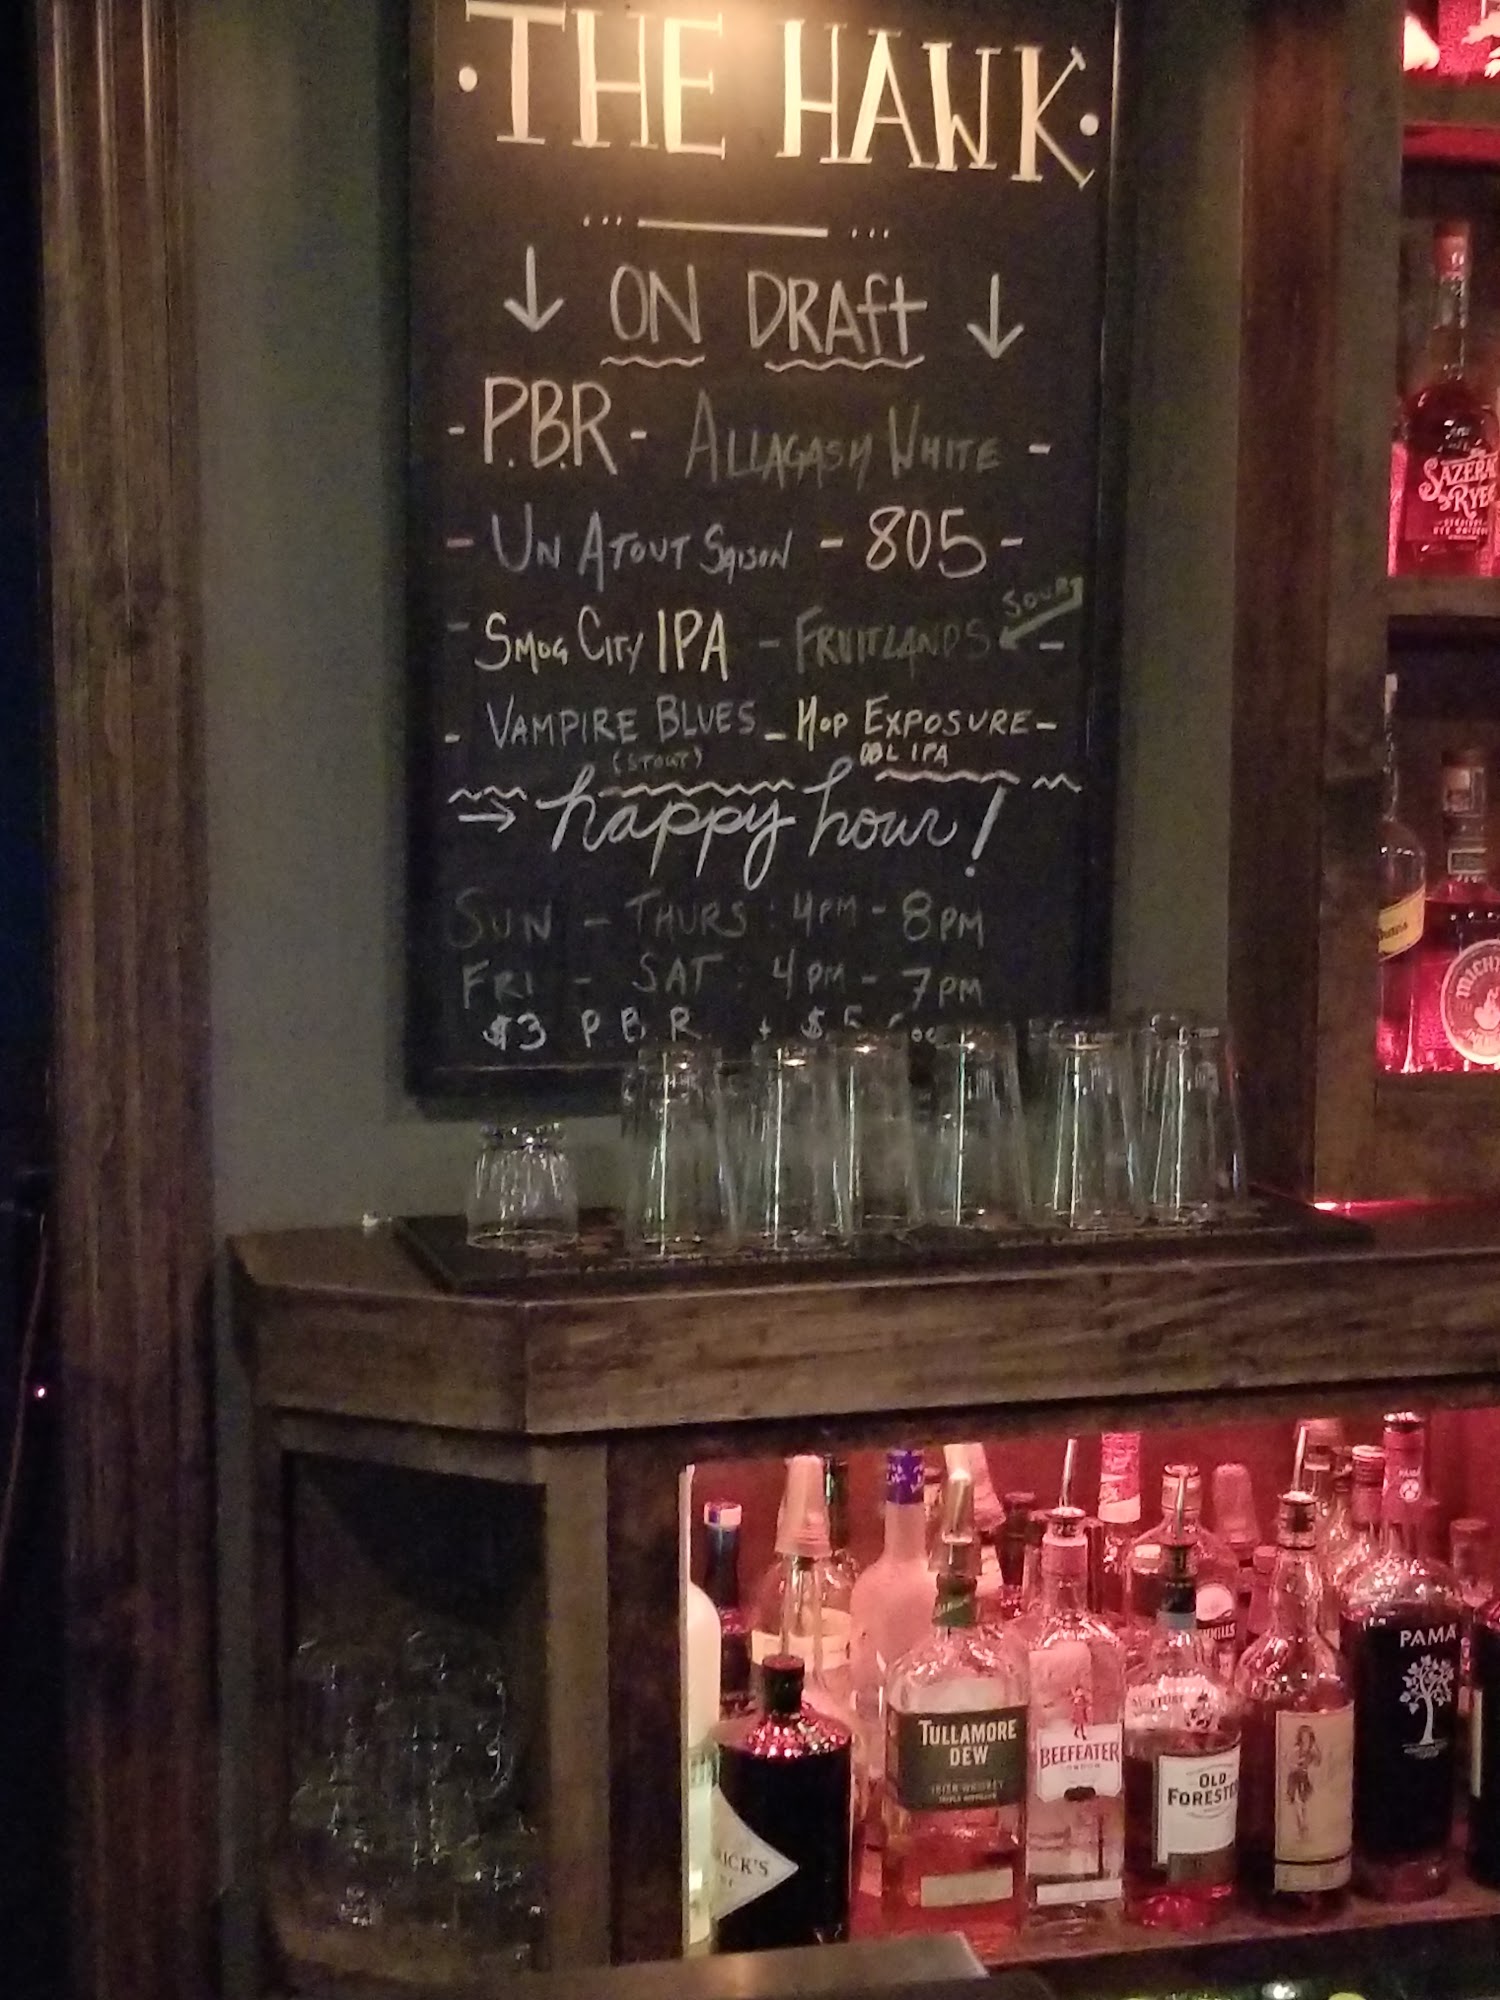 · THE HAWK ·
↓ ON DRAft ↓
- P.B.R - ALLAGASH WHITE -
- UN ATOUT SAISON - 805 -
SOUR
- SMOG CITY IPA - FRUITLANDS -
- VAMPIRE BLUES - HOP EXPOSURE -
(STOUT) DBL IPA
→ happy hour!
SUN - THURS : 4PM - 8PM
FRI - SAT : 4PM - 7PM
$3 P.B.R
SAZERAC
RYE
PAMA
TULLAMORE
DEW
IRISH WHISKEY
BEEFEATER
LONDON
OLD
FORESTE
RICK'S